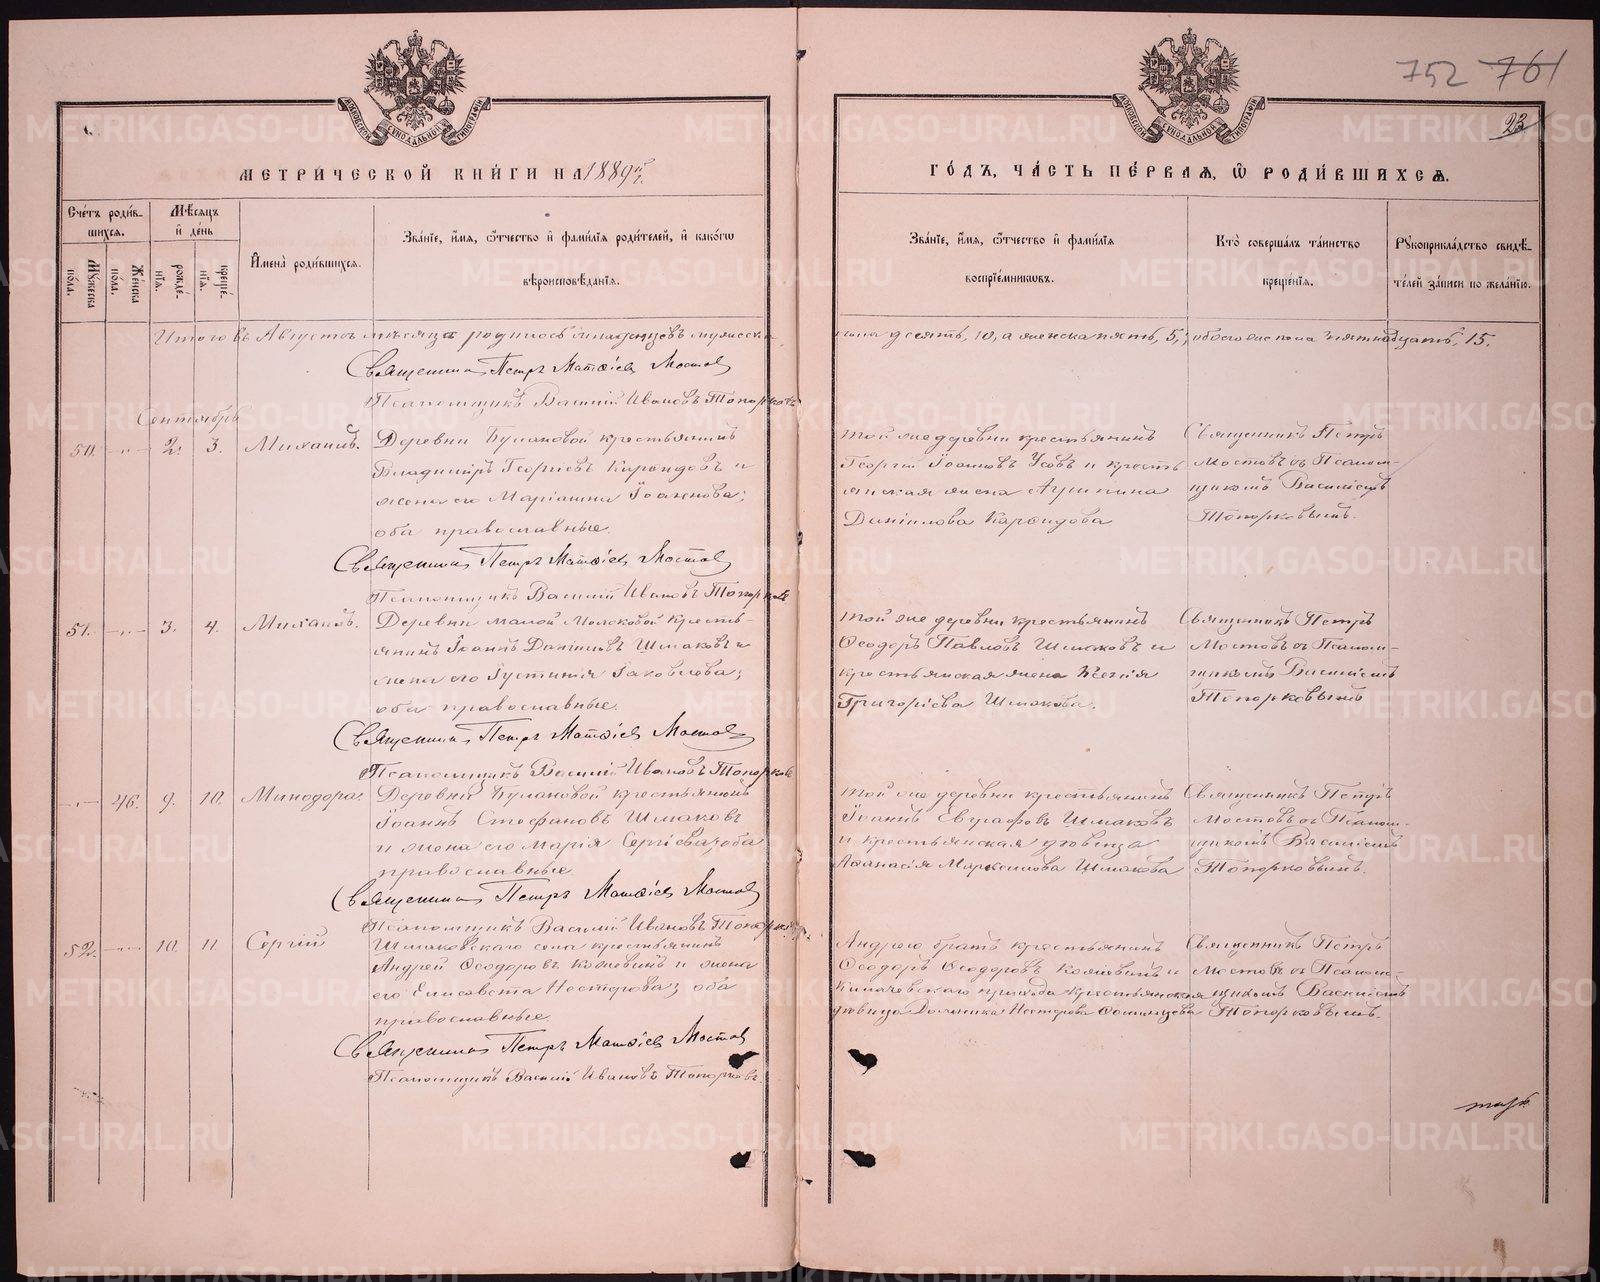 752 761
23
МОСКОВСКОЙ СУНОДАЛЬНОЙ ТИПОГРАФІИ
МОСКОВСКОЙ СУНОДАЛЬНОЙ ТИПОГРАФІИ
МЕТРИ́ЧЕСКОЙ КНИ́ГИ НА 1889й г.
ГО́ДЪ, ЧА́СТЬ ПЕ́РВАѦ, Ѽ РОДИ́ВШИХСѦ.
Сче́тъ роди́вшихсѧ.
Мꙋ́жеска по́ла.
Же́нска по́ла.
Мѣ́сѧцъ и҆ де́нь
рожде́нїѧ.
креще́нїѧ.
И҆мена̀ роди́вшихсѧ.
Зва́нїе, и҆́мѧ, ѻ҆́тчество и҆ фами́лїѧ роди́телей, и҆ како́гѡ вѣроисповѣ́данїѧ.
Зва́нїе, и҆́мѧ, ѻ҆́тчество и҆ фами́лїѧ воспрїе́мниковъ.
Кто̀ соверша́лъ та́инство креще́нїѧ.
Рꙋкоприкла́дство свидѣ́телей за́писи по жела́нїю.
Итого въ Августѣ мѣсяцѣ родилось младенцевъ мужеска
пола десять, 10, а женска пять, 5, обоего же пола пятнадцать, 15.
Священникъ Петръ Матѳіев Мостов
Псаломщикъ Василій Ивановъ Топорковъ
Сентябрь
50. -"- 2. 3. Михаилъ.
Деревни Булановой крестьянинъ
Владиміръ Георгіевъ и
жена его Маріамна Іоаннова;
оба православные.
той же деревни крестьянинъ
Георгій Іоанновъ Усовъ и кресть
янская жена
Даніилова
Священникъ Петръ
Мостовъ съ Псалом-
щикомъ Василіемъ
Топорковымъ.
Священник Петръ Матѳіев Мостов
Псаломщикъ Василій Ивановъ Топорков
51. -"- 3. 4. Михаилъ.
Деревни малой кресть-
янинъ Іоаннъ Даніиловъ Шмаковъ и
жена его Іустинія Іаковлева;
оба православные.
той же деревни крестьянинъ
Ѳеодоръ Павловъ Шмаковъ и
крестьянская жена Ксенія
Григоріева Шмакова.
Священникъ Петръ
Мостовъ съ Псалом-
щикомъ Василіемъ
Топорковымъ
Священник Петръ Матѳіев Мостов
Псаломщикъ Василій Ивановъ Топорков
-"- 46. 9. 10. Минодора.
Деревни Булановой крестьянинъ
Іоаннъ Стефановъ Шмаковъ
и жена его Марія Сергіева; оба
православные
той же деревни крестьянинъ
Іоаннъ Евграфовъ Шмаковъ
и крестьянская вдовица
Аѳанасія Шмакова
Священникъ Петръ
Мостовъ съ Псалом-
щикомъ Василіемъ
Топорковымъ.
Священник Петръ Матѳіев Мостов
Псаломщикъ Василій Ивановъ Топорков
52. -"- 10. 11. Сергій
Шмаковскаго села крестьянинъ
Андрей Ѳеодоровъ Кожевинъ и жена
его Елисавета Несторова; оба
православные.
Андреев братъ крестьянинъ
Ѳеодоръ Ѳеодоровъ Кожевинъ и
Килачевскаго прихода крестьянская
вдовица Домника Несторова
Священникъ Петръ
Мостовъ съ Псалом-
щикомъ Василіемъ
Топорковымъ.
Священник Петръ Матѳіев Мостов
Псаломщикъ Василій Ивановъ Топорковъ.
METRIKI.GASO-URAL.RU